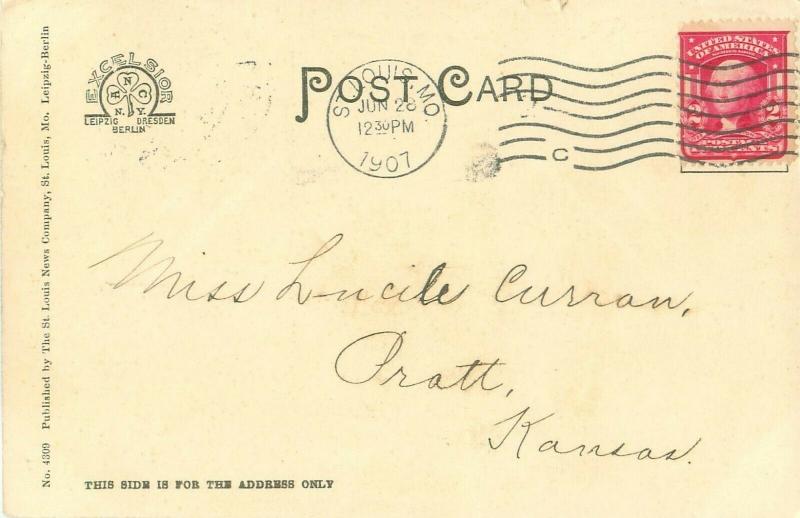 EXCELSIOR
A N C
N.Y.
LEIPZIG DRESDEN
BERLIN
POST CARD
ST. LOUIS, MO.
JUN 28
12 30 PM
1907
C
UNITED STATES
OF AMERICA
2 2
POSTAGE
CENTS
Miss Lucile Curran,
Pratt,
Kansas.
No. 4309 Published by The St. Louis News Company, St. Louis, Mo. Leipzig-Berlin
THIS SIDE IS FOR THE ADDRESS ONLY